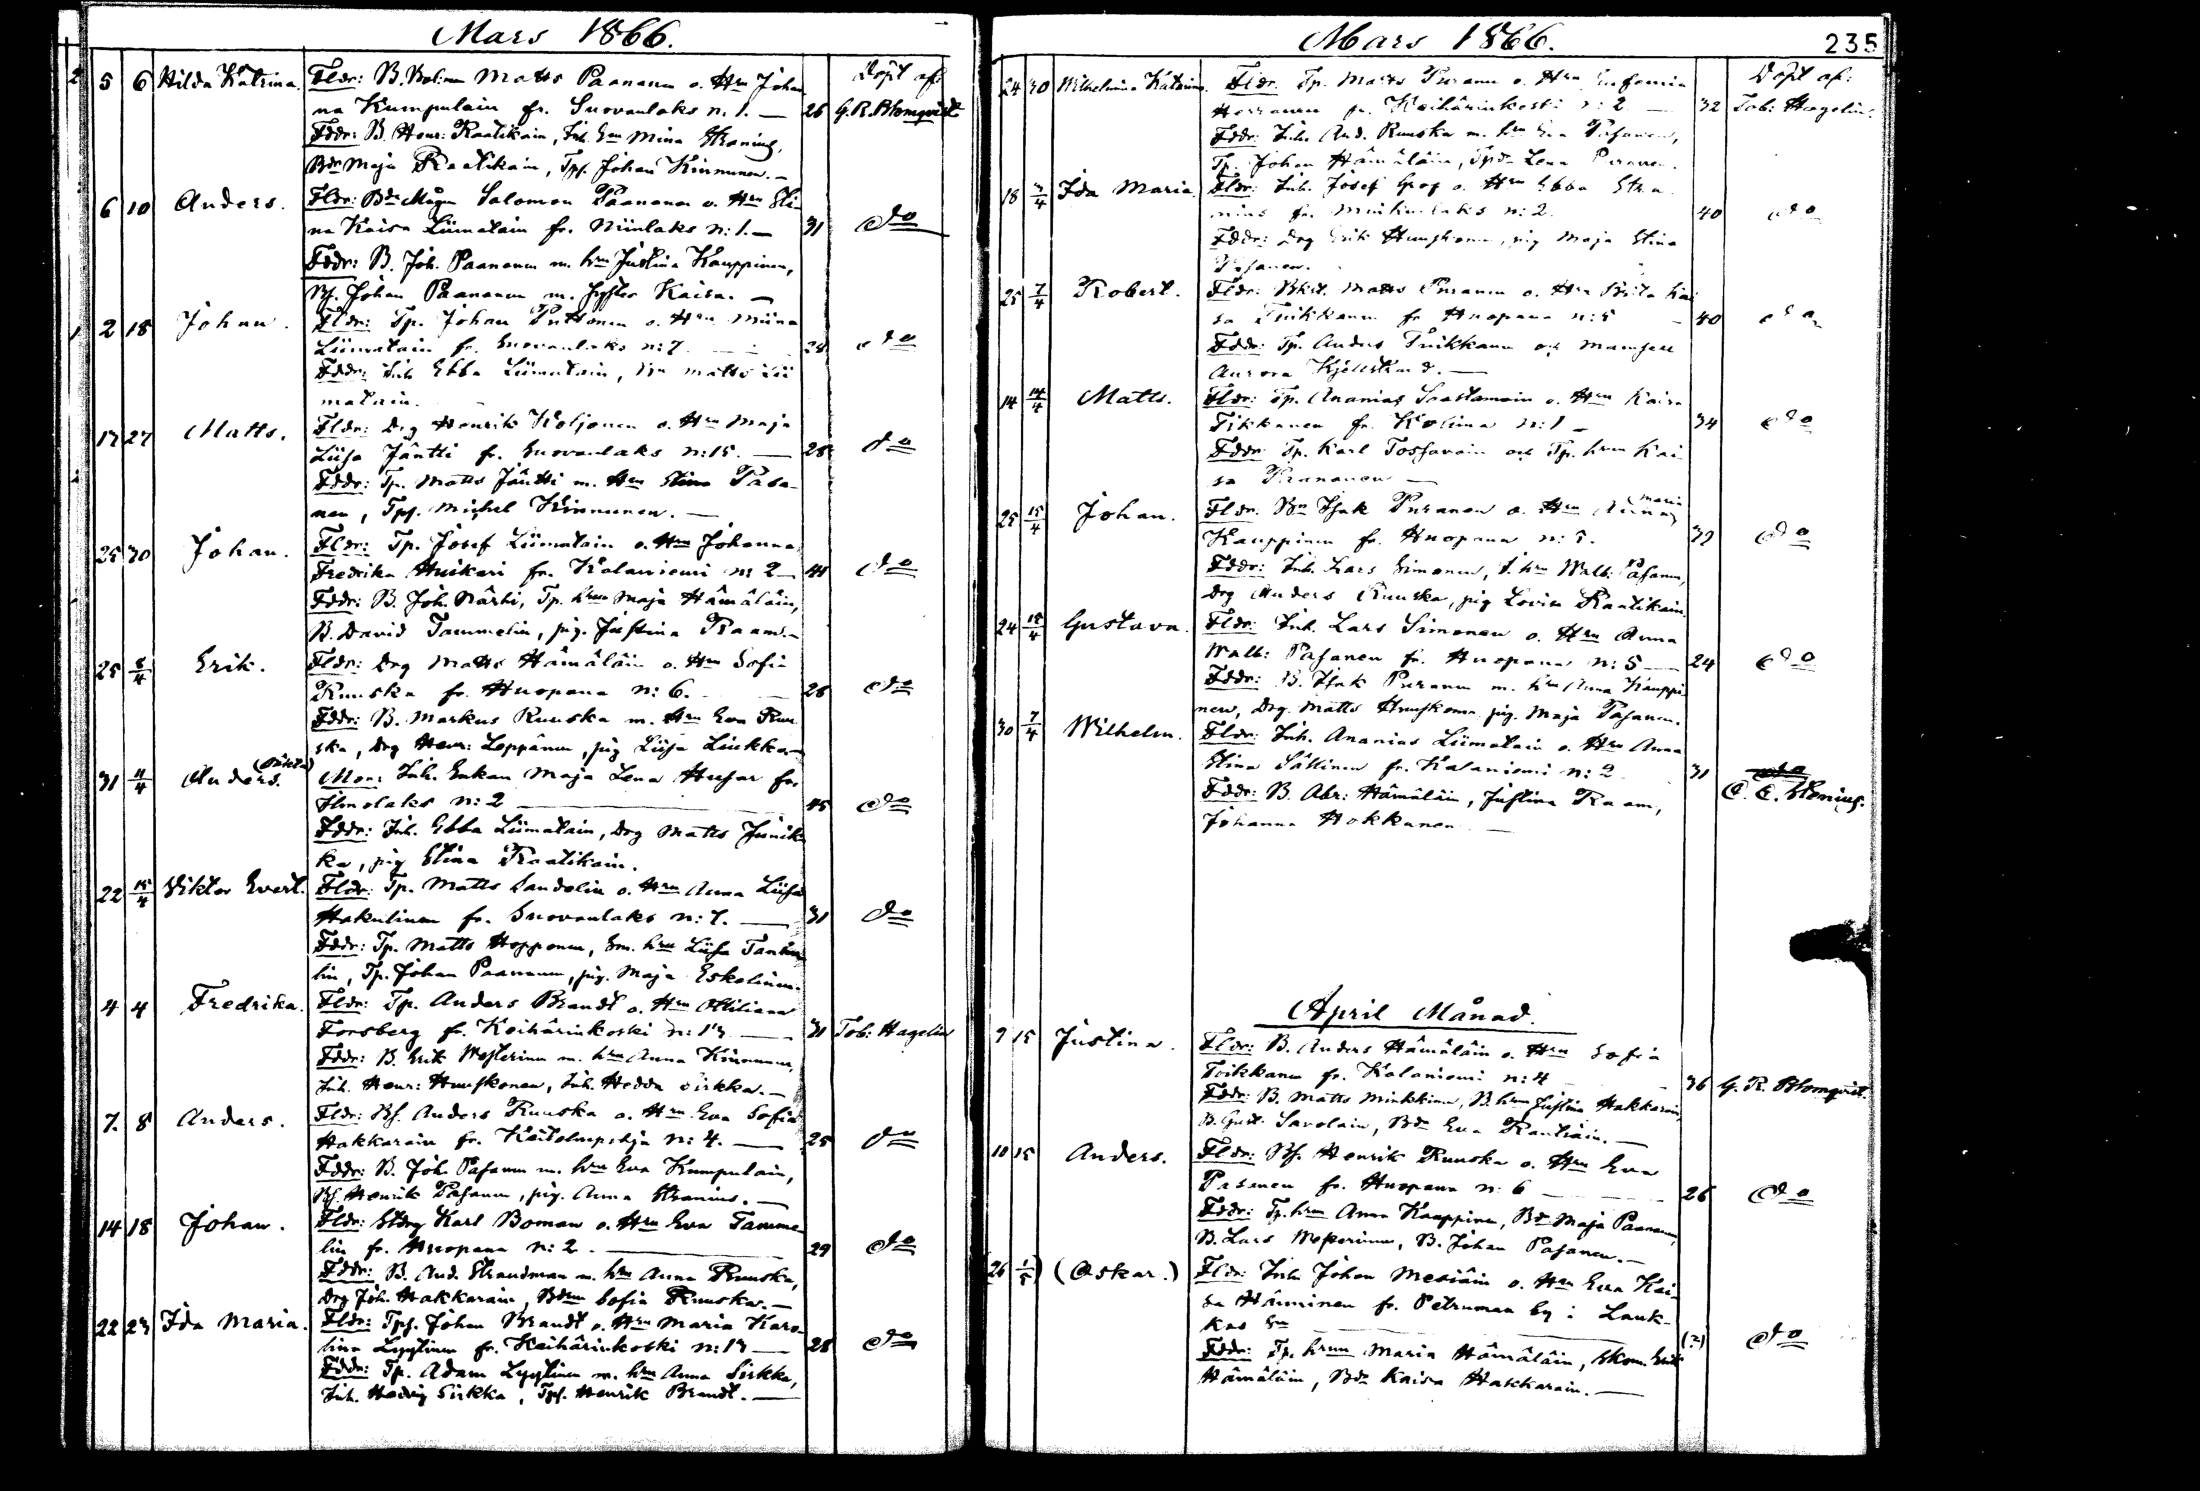 Mars 1866.
5 6 Hilda Katrina. Fldr: B. Bolm Matts Paananen o. Hru Johan Döpt af:
na Kumpulain fr. Suovanlaks n: 1. — 26 G. R. Blomqvist
Fddr: B. Henr: Raatikain, Inh. Em Mina Kroning,
Bdr Maja Raatikain, Tps. Johan Kinnunen. —
6 10 Anders. Fldr: Bdr Mågen Salomon Paananen o. Hru Sti-
na Kaisa Liimatain fr. Niinlaks n: 1. — 31 do
Fddr: B. Joh. Paananen m. hru Justina Kauppinen,
Bs. Johan Paananen m. syster Kaisa. —
2 18 Johan. Fldr: Tp. Johan Puttonen o. Hru Miina
Liimatain fr. Suovanlaks n: 7. 28 do
Fddr: Inh. Ebba Liimatain, Matts Lii
matain.
17 27 Matts. Fldr: Drg Henrik Koljonen o. Hru Maja
Liisa Jäntti fr. Suovanlaks n: 15. — 28 do
Fddr: Tp. Matts Jäntti m. Hru Stina Paba-
nen, Tps. Michel Kinnunen. —
25 30 Johan. Fldr: Tp. Josef Liimatain o. Hru Johanna
Fredrika Huikari fr. Kolaniemi n: 2 — 41 do
Fddr: B. Joh. Närhi, Tp. hru Maja Hämäläin,
B. David Tammelin, pig. Justina Raam. —
25 8/4 Erik. Fldr: Drg Matts Hämäläin o. Hru Sofia
Ruuska fr. Huopana n: 6. 26 do
Fddr: B. Markus Ruuska m. Hru Eva Ruu
ska, Drg Henr: Leppänen, pig Liisa Liukko —
31 11/4 Anders. Mor: Inh. Enkan Maja Lena Husar fr.
Ilmolaks n: 2 — 45 do
Fddr: Inh. Ebba Liimatain, Drg Matts Junik
ka, pig Stina Raatikain.
22 15/4 Viktor Evert. Fldr: Tp. Matts Sandelin o. Hru Anna Liisa
Hakulinen fr. Suovanlaks n: 7. — 31 do
Fddr: Tp. Matts Hopponen, hru Liisa
lin, Tp. Johan Paananen, pig. Maja Eskelinen.
4 4 Fredrika. Fldr: Tp. Anders Brandt o. Hru Ottiliana
Forsberg fr. Keihärinkoski n: 13 — 31 Tob: Hagelin
Fddr: B. Erik Westerinen m. hru Anna Kinnunen,
Inh. Henr: Huuskonen, Inh. Hedda Sirkka. —
7. 8 Anders. Fldr: Bs. Anders Ruuska o. Hru Eva Sofia
Hakkarain fr. Keitelepohja n: 4. — 25 do
Fddr: B. Joh. Pasanen m. hru Eva Kumpulain,
Bs. Henrik Pasanen, pig. Anna Stranius. —
14 18 Johan. Fldr: Stdrg Karl Boman o. Hru Eva Tamme
lin fr. Huopana n: 2. — 29 do
Fddr: B. And. Strandman m. hru Anna Ruuska,
Drg Joh. Hakkarain, Sofia Ruuska. —
22 23 Ida Maria. Fldr: Tps. Johan Brandt o. Hru Maria Karo-
lina Lyytinen fr. Keihärinkoski n: 13 — 28 do
Fddr: Tp. Adam Lyytinen m. hru Anna Sirkka,
Inh. Hedvig Sirkka, Tps. Henrik Brandt. —
Mars 1866. 235
24 30 Wilhelmina Katarina. Fldr. Tp. Matts Puranen o. Hru Eufemia Döpt af:
fr. Keihärinkoski n: 2 — 32 Tob: Hagelin.
Fddr: Inh. And. Ruuska m. hru Eva Pasanen,
Tp. Johan Hämäläin, Lena Puranen.
18 3/4 Ida Maria. Fldr: Inh. Josef Grof o. Hru Ebba Stra
nius fr. n: 2. 40 do
Fddr: Drg Erik Huuskonen, pig Maja Stina
Pasanen.
25 7/4 Robert. Fldr: Matts Puranen o. Hru Brita Kai
sa fr Huopana n: 5 40 do
Fddr: Tp. Anders och Mamsell
Aurora Kjellstrand. —
14 14/4 Matts. Fldr: Tp. Ananias Saastamoin o. Hru Kaisa
Tikkanen fr. Kolima n: 1 — 34 do
Fddr: Tp. Karl Tossavain och Tp. hru Kai
sa Paananen —
25 15/4 Johan. Fldr. Bn Isak Puranen o. Hru Maria
Kauppinen fr. Huopana n: 5. 32 do
Fddr: Inh. Lars Simonen, hru Walb: Pasanen,
Drg Anders Ruuska, pig Lovisa Raatikain.
24 15/4 Gustava. Fldr: Inh. Lars Simonen o. Hru Anna
Walb: Pasanen fr. Huopana n: 5 — 24 do
Fddr: B. Isak Puranen m. hru Anna Kauppi
nen, Drg. Matts Huuskonen pig. Maja Pasanen.
30 7/4 Wilhelm. Fldr: Inh. Ananias Liimatain o. Hru Anna
Stina Sällinen fr. Kolaniemi n: 2 31 do
Fddr: B. Abr: Hämäläin, Justina Raam, C. C. Stenius.
Johanna Hokkanen. —
April Månad.
9 15 Justina. Fldr: B. Anders Hämäläin o. Hru Sofia
Toikkanen fr. Kolaniemi n: 4 36 G. R. Blomqvist.
Fddr: B. Matts Minkkinen, B. hru Justina Hakkarain,
B. Gust. Savolain, Bdr Eva Rautiain. —
10 15 Anders. Fldr: Bs. Henrik Ruuska o. Hru Eva
Pasanen fr. Huopana n: 6 — 26 do
Fddr: Tp. hru Anna Kauppinen, Bdr Maja Paananen,
B. Lars Westerinen, B. Johan Pasanen. —
(26 1/5) (Oskar.) Fldr: Inh. Johan Mesiäin o. Hru Eva Kai-
sa Hänninen fr. Petruman by i Lauk-
kas
Fddr: Tp. hru Maria Hämäläin, Skom. Erik (?) do
Hämäläin, Bdr Kaisa Hakkarain. —